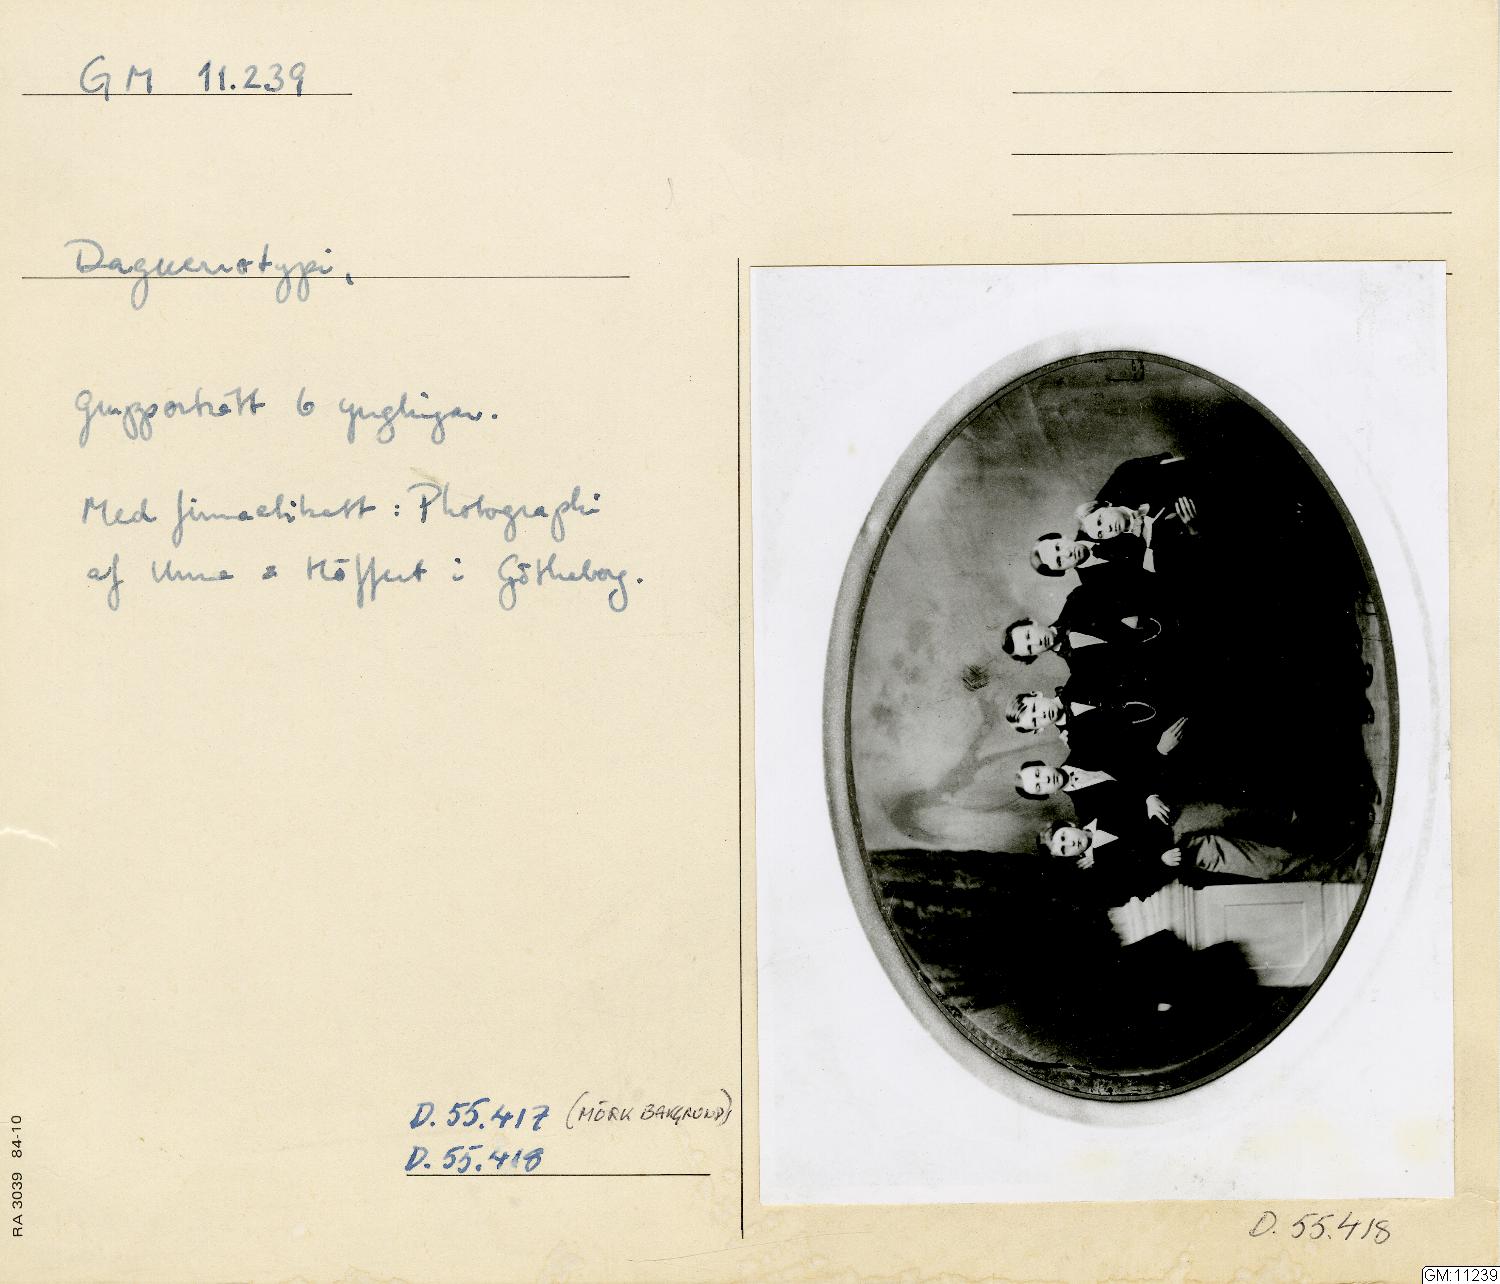 GM 11.239
Daguerrotypi,
Grupporträtt 6 ynglingar.
Med firmaetikett: Photographi
af Unna & Höffert i Götheborg.
D. 55.417 (MÖRK BAKGRUND)
D. 55.418
RA 3039 84-10
D. 55.418
GM:11239